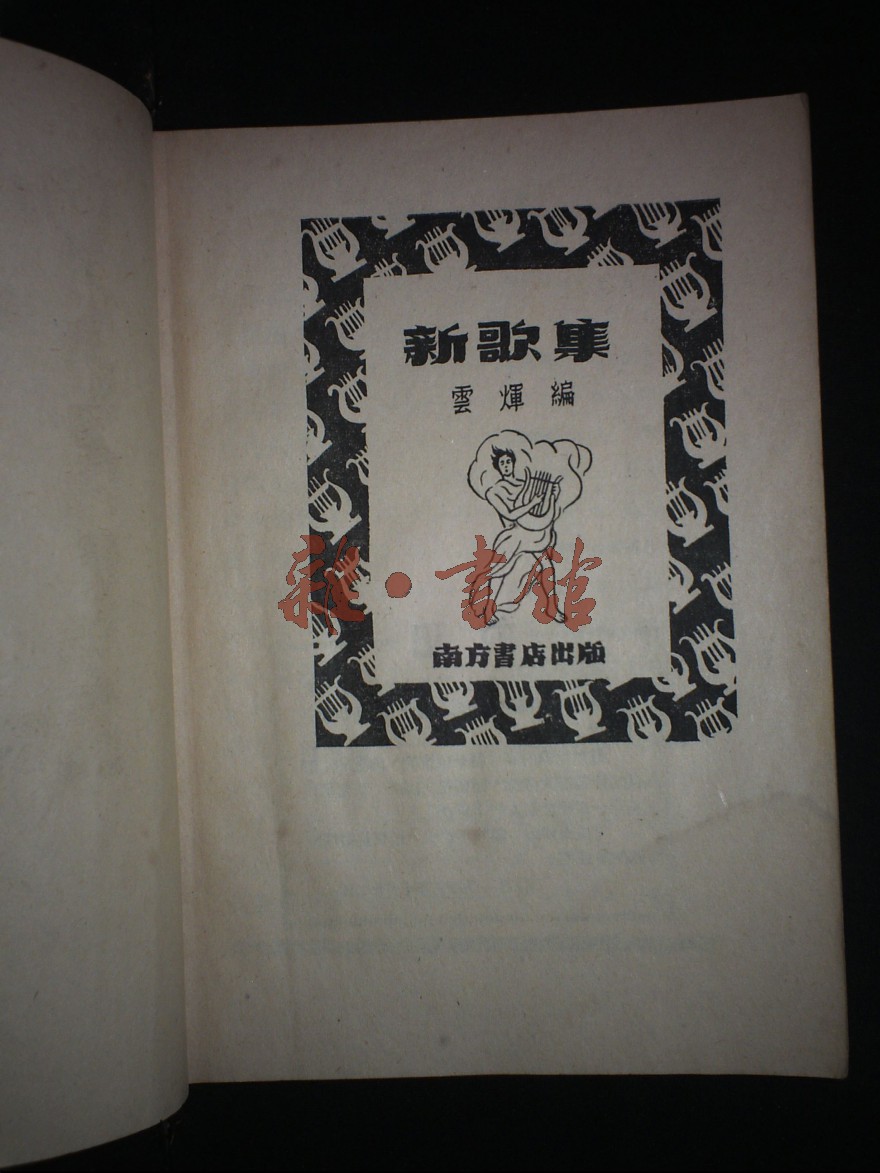 新歌集
雲煇編
雜·書館
南方書店出版